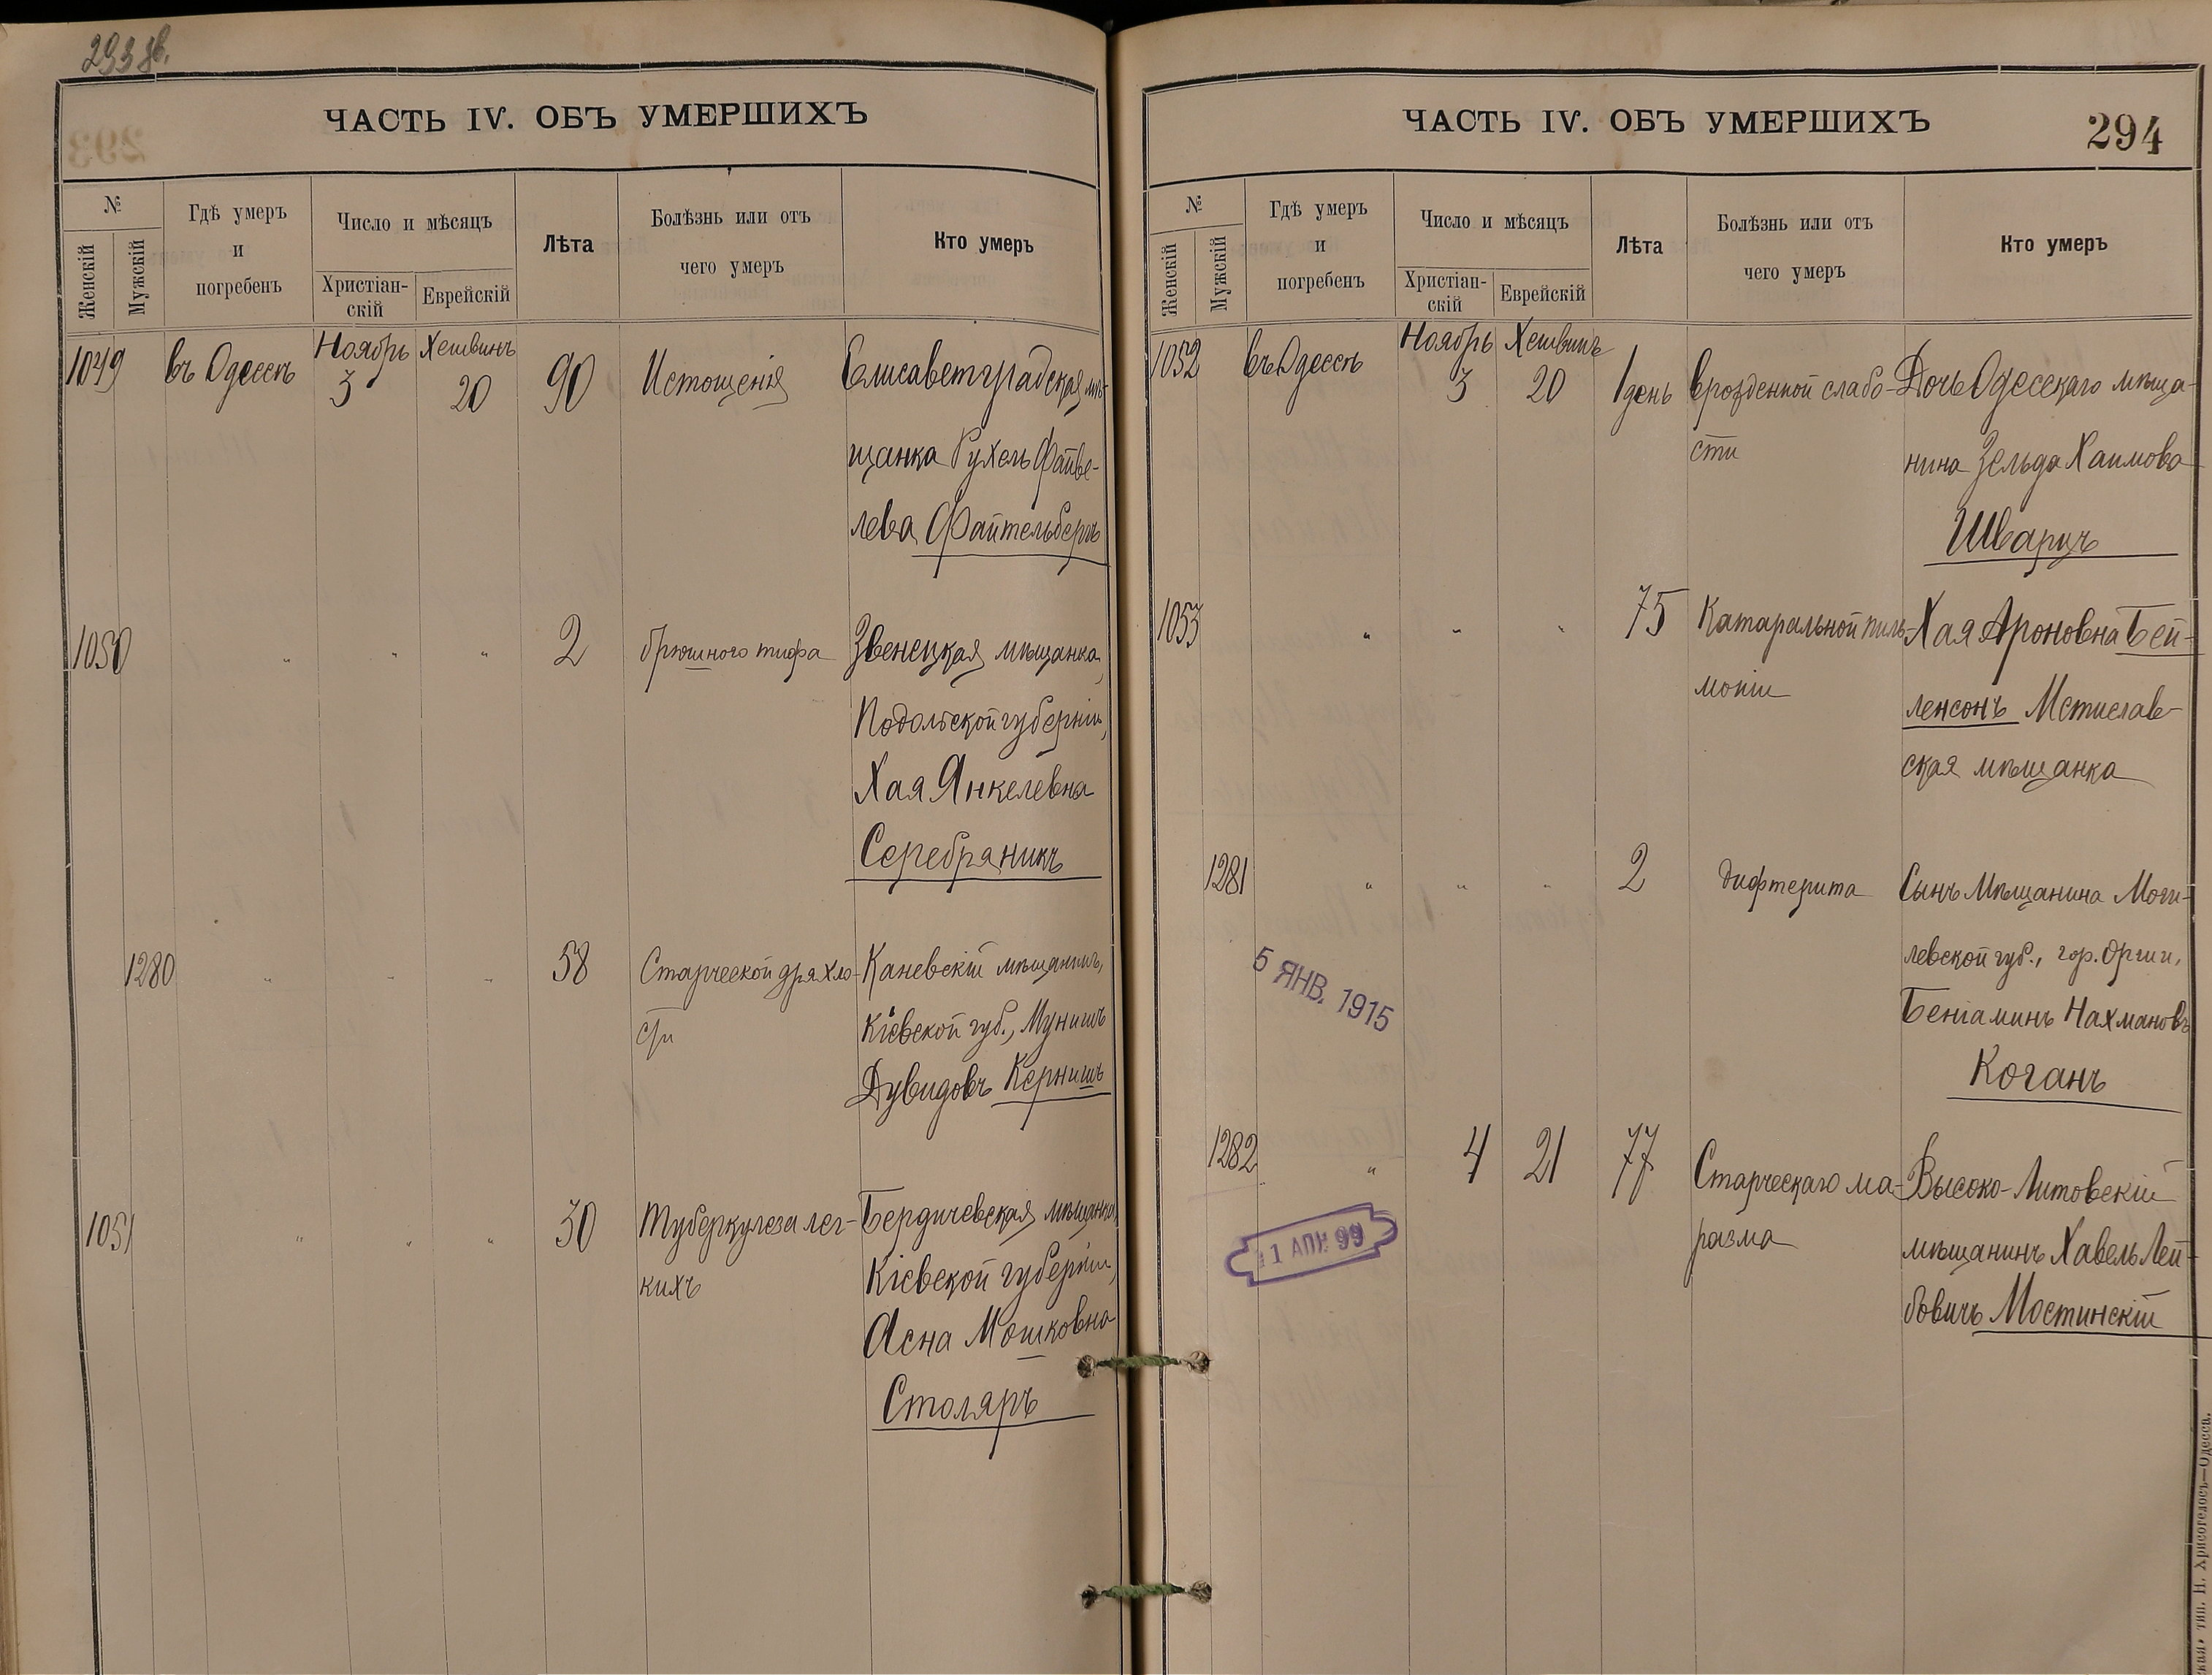 293 об.
ЧАСТЬ IV. ОБЪ УМЕРШИХЪ
№
Женскій
Мужскій
Гдѣ умеръ
и
погребенъ
Число и мѣсяцъ
Христіан-
скій
Еврейскій
Лѣта
Болѣзнь или отъ
чего умеръ
Кто умеръ
1049 въ Одессѣ Ноябрь 3 Хешвинъ 20 90 Истощенія Елисаветградская мѣ-
щанка Рухель Файве-
лева Файтельбергъ
1050 " " " 2 брюшного тифа Звенецкая мѣщанка,
Подольской губерніи,
Хая Янкелевна
Серебряникъ
1280 " " " 58 Старческой дряхло- Каневскій мѣщанинъ,
сти Кіевской губ., Мунишъ
Дувидовъ Кернишъ
1051 " " " 30 Туберкулеза лег- Бердичевская мѣщанка,
кихъ Кіевской губерніи,
Асна Мошковна
Столяръ
ЧАСТЬ IV. ОБЪ УМЕРШИХЪ
294
№
Женскій
Мужскій
Гдѣ умеръ
и
погребенъ
Число и мѣсяцъ
Христіан-
скій
Еврейскій
Лѣта
Болѣзнь или отъ
чего умеръ
Кто умеръ
1052 въ Одессѣ Ноябрь 3 Хешвинъ 20 1 день врожденной слабо- Дочь Одесскаго мѣща-
сти нина Зельда Хаимова
Шварцъ
1053 " " " 75 Катаральной пнев- Хая Ароновна Бей-
моніи ленсонъ Мстислав-
ская мѣщанка
1281 " " " 2 дифтерита Сынъ мѣщанина Моги-
левской губ., гор. Орши,
Беніаминъ Нахмановъ
Коганъ
5 ЯНВ. 1915
1282 " 4 21 77 Старческаго ма- Высоко-Литовскій
разма мѣщанинъ Хавель Лей-
бовичъ Мостинскій
1 АПР 99
тип. Н. Хрисогелосъ—Одесса.